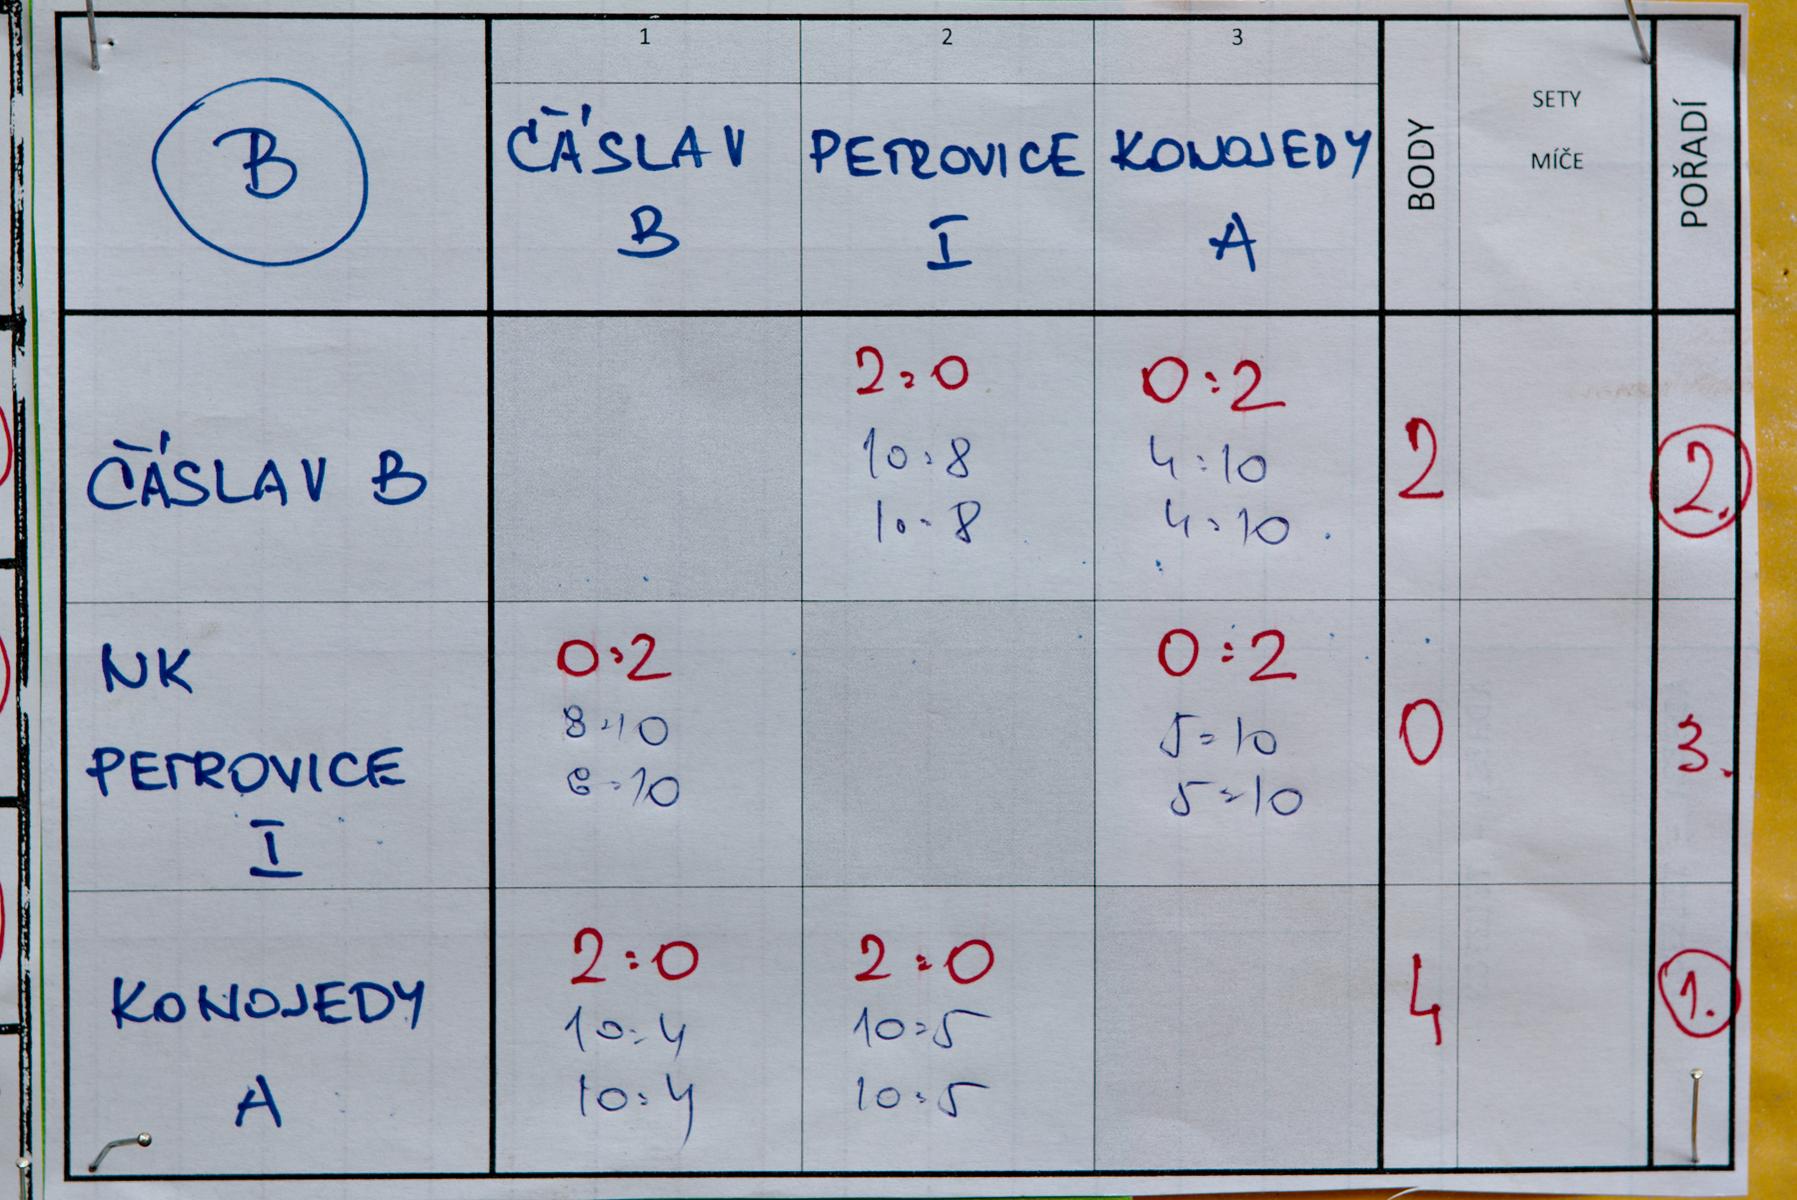 1 2 3
B
ČÁSLAV PETROVICE KONOJEDY
B I A
BODY
SETY
MÍČE
POŘADÍ
2:0 0:2
10:8 4:10
ČÁSLAV B 2 2.
10:8 4:10
0:2 0:2
NK
8:10 5:10
PETROVICE 0 3.
6:10 5:10
I
2:0 2:0
KONOJEDY 4 1.
10:4 10:5
10:4 10:5
A